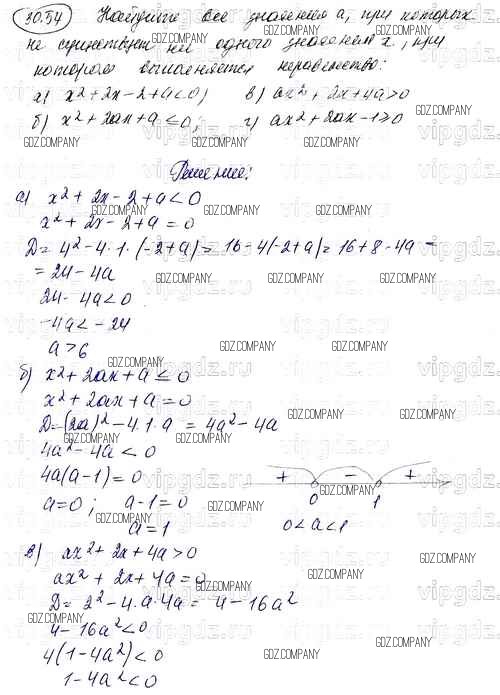 30.54 Найдите все значения a, при которых
не существует ни одного значения x, при
котором выполняется неравенство:
а) x²+2x-2+a<0; в) ax²+2x+4a>0
б) x²+2ax+a≤0; г) ax²+2ax-1≥0
Решение:
а) x²+2x-2+a<0
x²+2x-2+a=0
D=4²-4·1·(-2+a)=16-4(-2+a)=16+8-4a=
=24-4a
24-4a<0
-4a<-24
a>6
б) x²+2ax+a≤0
x²+2ax+a=0
D=(2a)²-4·1·a=4a²-4a
4a²-4a<0
4a(a-1)=0
a=0; a-1=0
a=1
+ - +
0 1
0<a<1
в) ax²+2x+4a>0
ax²+2x+4a=0
D=2²-4·a·4a=4-16a²
4-16a²<0
4(1-4a²)<0
1-4a²<0
vipgdz.ru
GDZ.COMPANY